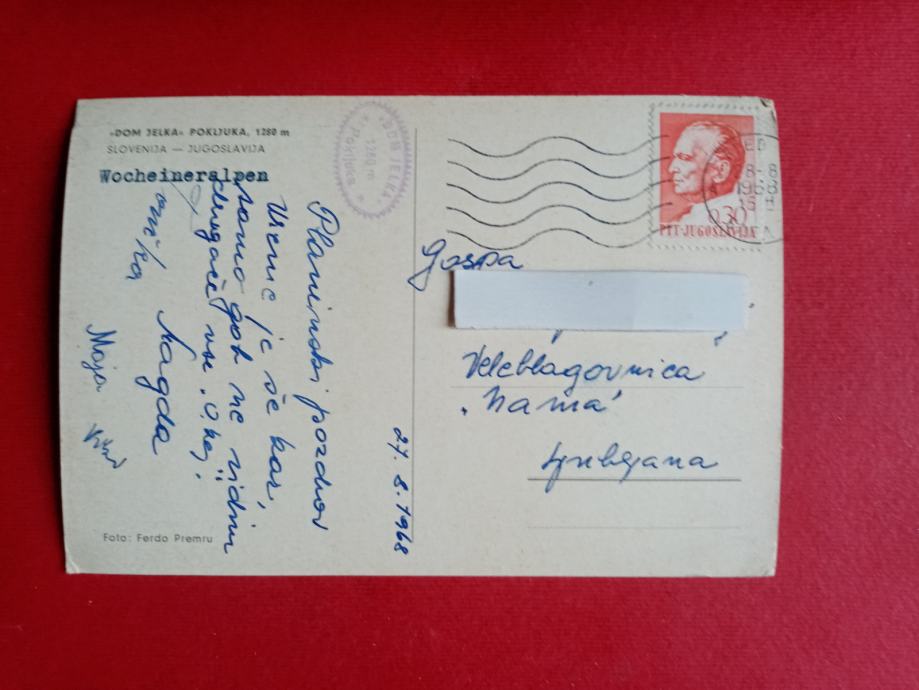 »DOM JELKA« POKLJUKA, 1280 m
SLOVENIJA — JUGOSLAVIJA
Wocheineralpen
»DOM JELKA«
1280 m
Pokljuka
Planinski pozdrav
Vreme je še kar,
samo gob ne vidim
drugače vse "o.key"!
Magda
Moja
27. 8. 1968
Foto: Ferdo Premru
8-8
1968
15 H
0,30
PTT-JUGOSLAVIJA
Gospa
Veleblagovnica
"Nama"
Ljubljana